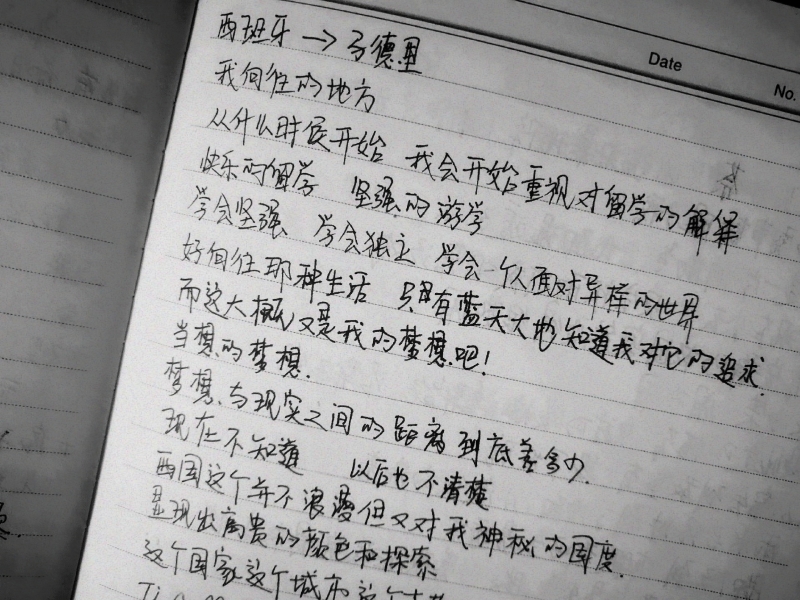 Date
No.
西班牙 → 马德里
我向往的地方
从什么时侯开始 我会开始重视对留学的解释
快乐的留学 坚强的游学
学会坚强 学会独立 学会一个人面对异样的世界
好向往那种生活 只有蓝天大地知道我对它的追求.
而这大概又是我的梦想吧!
当想的梦想.
梦想与现实之间的距离到底差多少.
现在不知道 以后也不清楚
西国这个并不浪漫但又对我神秘的国度.
显现出高贵的颜色和探索
这个国家这个城市这个